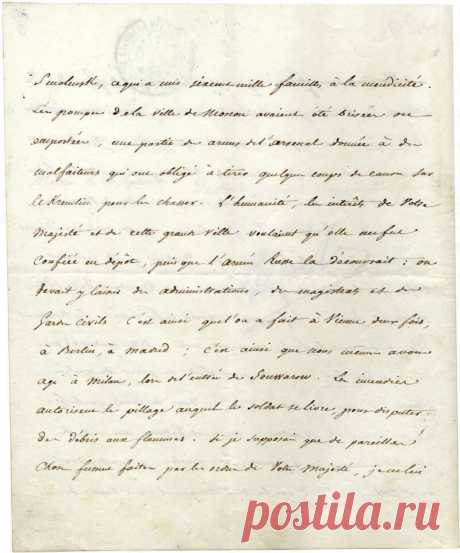 Smolensk, ce qui a mis six cent mille familles à la mendicité.
Les pompes de la ville de Moscou avaient été brisées ou
emportées, une partie des armes de l'arsenal donnée à des
malfaiteurs qui ont obligé à tirer quelques coups de canon sur
le Kremlin pour les chasser. L'humanité, les intérêts de Votre
Majesté et de cette grande Ville voulaient qu'elle me fut
confiée en dépôt, puisque l'armée Russe la découvrait ; on
devait y laisser des administrations, des magistrats et des
Gardes civils. C'est ainsi que l'on a fait à Vienne deux fois,
à Berlin, à Madrid ; c'est ainsi que nous mêmes avons
agi à Milan, lors de l'entrée de Souwarow. Les incendies
autorisent le pillage auquel le soldat se livre, pour disputer
des débris aux flammes. Si je supposais que de pareilles
Choses fussent faites par les ordres de Votre Majesté, je ne lui
postila.ru